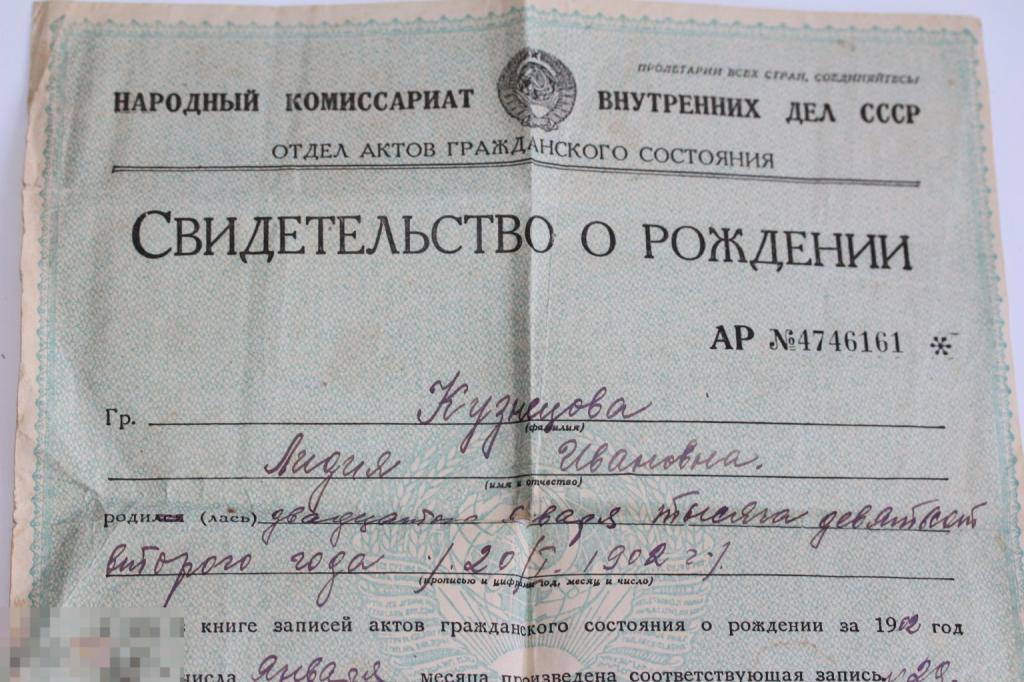 ПРОЛЕТАРИИ ВСЕХ СТРАН, СОЕДИНЯЙТЕСЬ!
НАРОДНЫЙ КОМИССАРИАТ ВНУТРЕННИХ ДЕЛ СССР
ОТДЕЛ АКТОВ ГРАЖДАНСКОГО СОСТОЯНИЯ
СВИДЕТЕЛЬСТВО О РОЖДЕНИИ
АР №4746161 *
Гр. Кузнецова
(фамилия)
Лидия Ивановна.
(имя и отчество)
родился (лась) двадцатого января тысяча девятьсот
второго года /.20/I. 1902 г./.
(прописью и цифрами год, месяц и число)
книге записей актов гражданского состояния о рождении за 1902 год
числа января месяца произведена соответствующая запись 20.